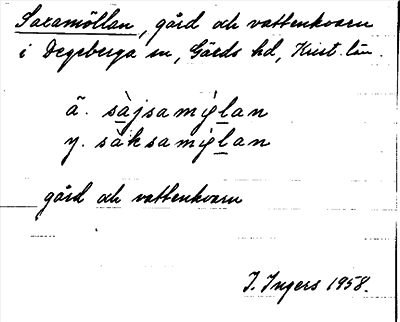 Saxamöllan, gård och vattenkvarn
i Degeberga sn, Gärds hd, Krist. län.
ä. sàjsamýlan
y. sàksamýlan
gård och vattenkvarn
I. Ingers 1958.